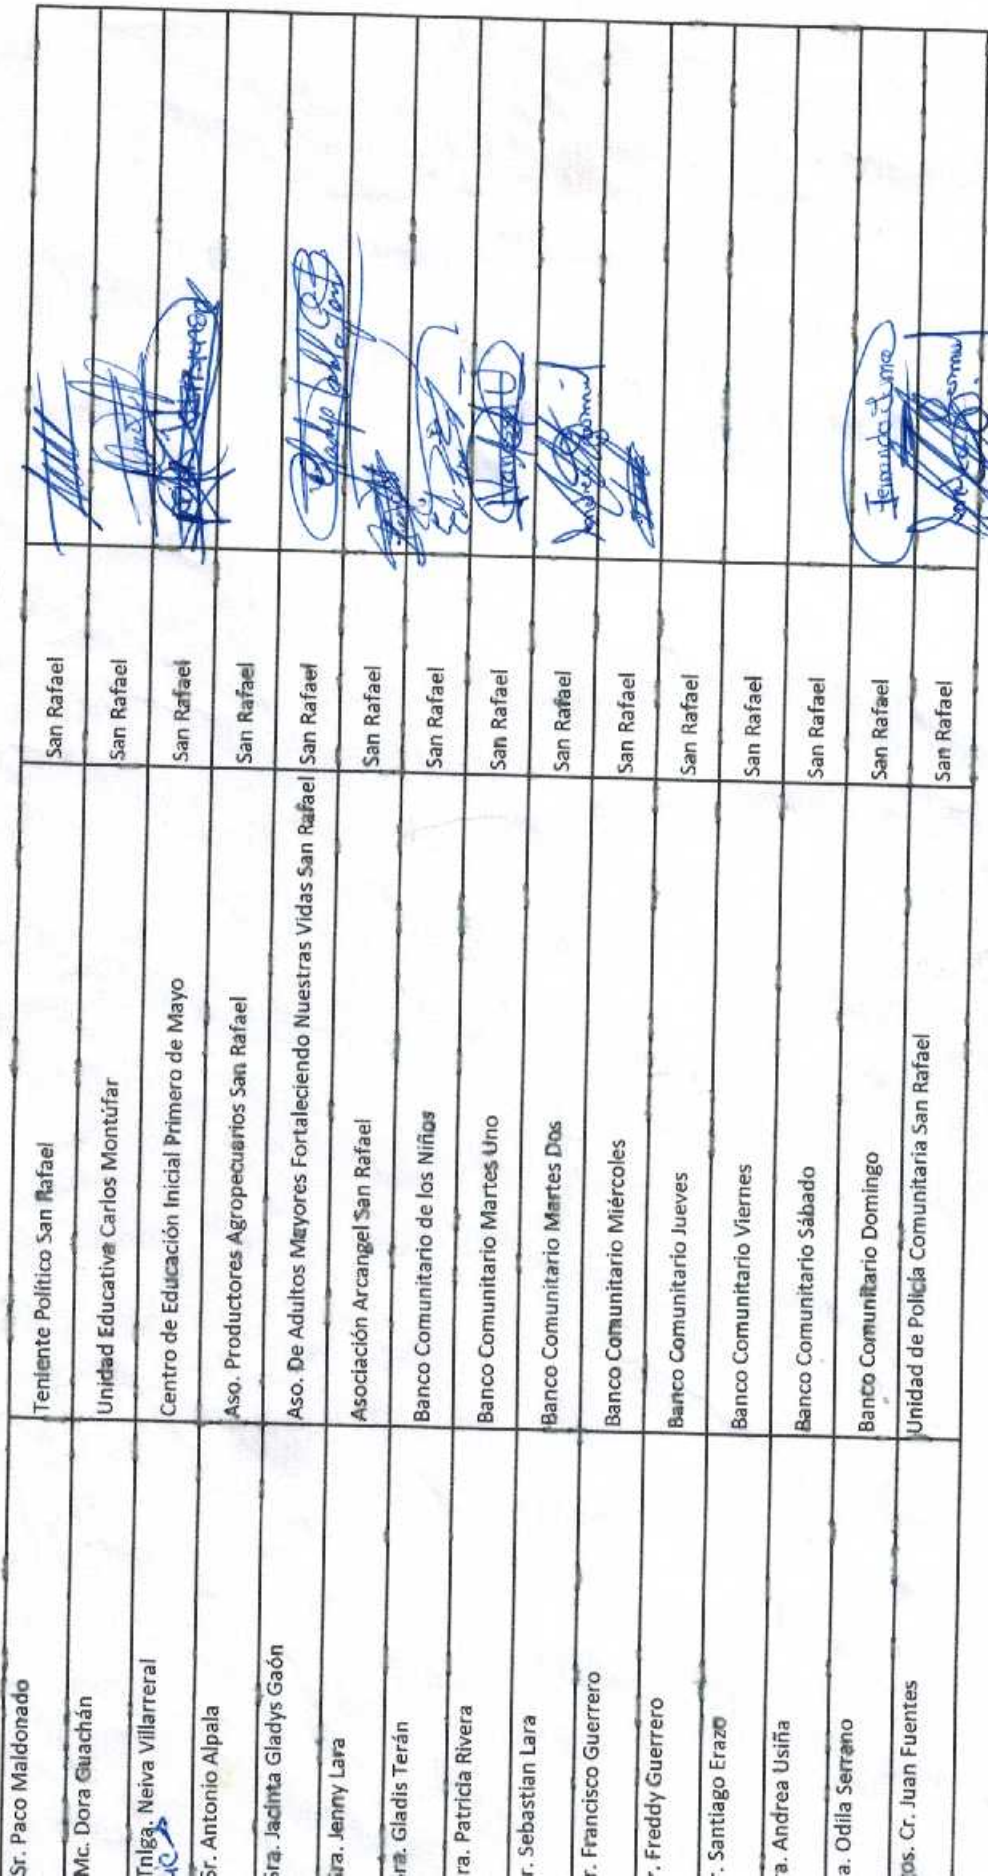 Sr. Paco Maldonado Teniente Político San Rafael San Rafael
Mc. Dora Guachán Unidad Educativa Carlos Montúfar San Rafael
Tnlga. Neiva Villarreral Centro de Educación Inicial Primero de Mayo San Rafael
Sr. Antonio Alpala Aso. Productores Agropecuarios San Rafael San Rafael
Sra. Jacinta Gladys Gaón Aso. De Adultos Mayores Fortaleciendo Nuestras Vidas San Rafael San Rafael
Sra. Jenny Lara Asociación Arcangel San Rafael San Rafael
ra. Gladis Terán Banco Comunitario de los Niños San Rafael
ra. Patricia Rivera Banco Comunitario Martes Uno San Rafael
r. Sebastian Lara Banco Comunitario Martes Dos San Rafael
r. Francisco Guerrero Banco Comunitario Miércoles San Rafael
r. Freddy Guerrero Banco Comunitario Jueves San Rafael
. Santiago Erazo Banco Comunitario Viernes San Rafael
ra. Andrea Usiña Banco Comunitario Sábado San Rafael
a. Odila Serrano Banco Comunitario Domingo San Rafael
os. Cr. Juan Fuentes Unidad de Policía Comunitaria San Rafael San Rafael